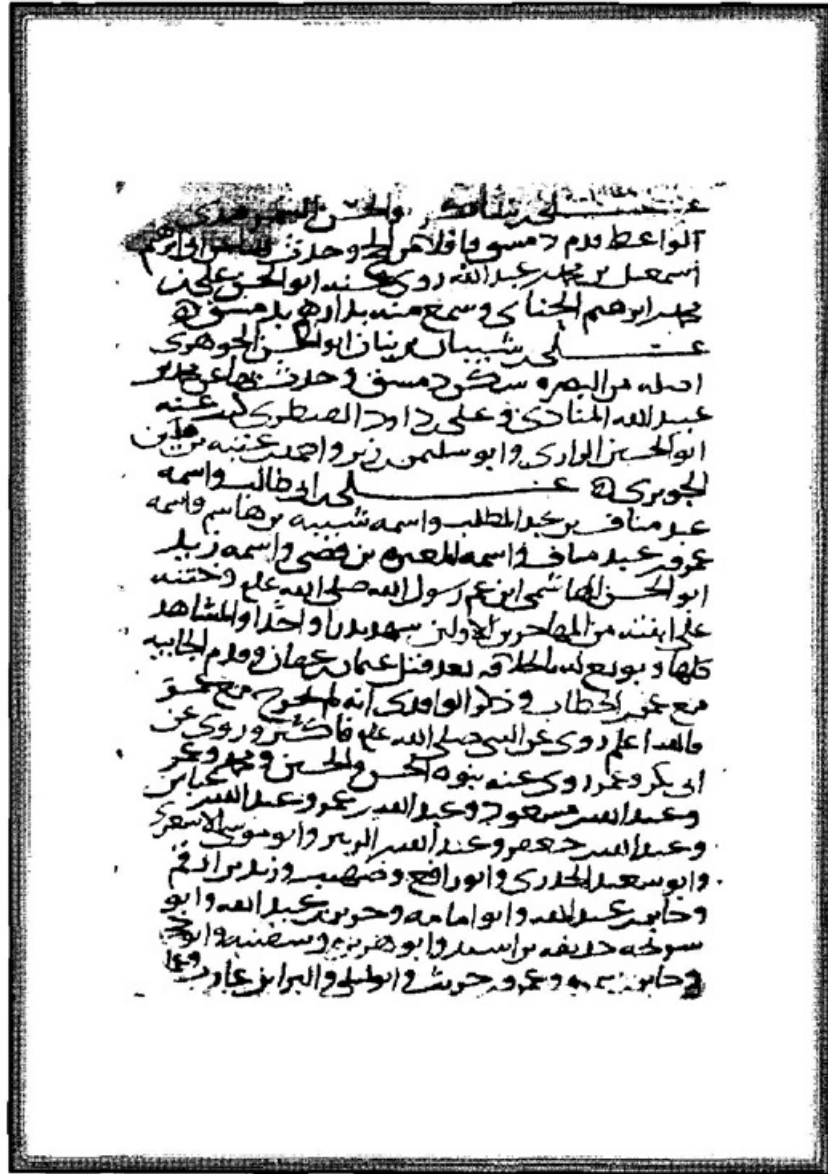 علي بن
الواعظ قدم دمشق قافلا من الحج وحدث
اسمعيل بن محمد بن عبد الله روى عنه ابو الحسن علي بن
محمد بن ابرهيم الحنائي وسمع منه بداره بدمشق
علي بن شيبان بن بنان ابو الحسن الجوهري
اصله من البصره سكن دمشق وحدث بها عن محمد بن
عبيد الله المنادي وعلي بن داود القنطري كتب عنه
ابو الحسين الرازي وابو سليمن بن زبر واحمد بن عتبه بن
الجوبري علي بن ابي طالب واسمه
عبد مناف بن عبد المطلب واسمه شيبه بن هاشم واسمه
عمرو بن عبد مناف واسمه المغيره بن قصي واسمه زيد
ابو الحسن الهاشمي ابن عم رسول الله صلى الله عليه وختنه
على ابنته من المهاجرين الاولين شهد بدرا واحدا والمشاهد
كلها وبويع له بالخلافه بعد قتل عثمان بن عفان وقدم الجابيه
مع عمر بن الخطاب وذكر الواقدي انه لم يخرج مع عمر
فالله اعلم روى عن النبي صلى الله عليه فاكثر وروى عن
ابي بكر وعمر روى عنه بنوه الحسن والحسين ومحمد وعمر
وعبد الله بن مسعود وعبد الله بن عمر وعبد الله بن عباس
وعبد الله بن جعفر وعبد الله بن الزبير وابو موسى الاشعري
وابو سعيد الخدري وابو رافع وصهيب وزيد بن ارقم
وجابر بن عبد الله وابو امامه وجرير بن عبد الله وابو
سريحه حذيفه بن اسيد وابو هريره وسفينه وابو
وجابر بن سمره وعمرو بن حريث وابو ليلى والبرا بن عازب